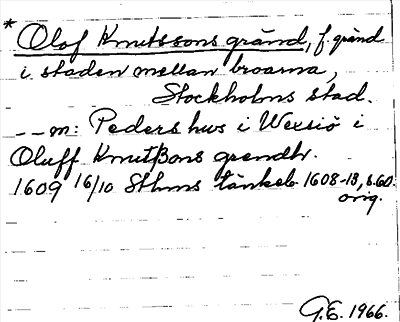 * Olof Knutssons gränd, f. gränd
i staden mellan broarna,
Stockholms stad.
– – m: Peders hus i Wexsiö i
Oluff Knutßons grendh.
1609 16/10 Sthms tänkeb. 1608-13, s. 60.
orig.
G.E. 1966.